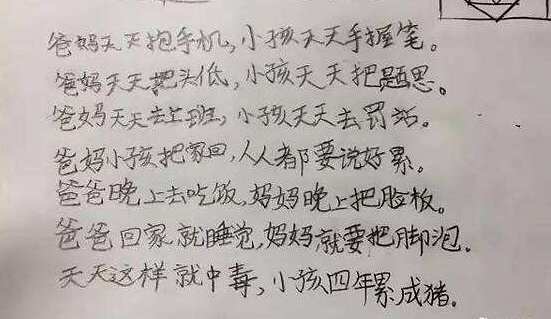 爸妈天天抱手机，小孩天天手握笔。
爸妈天天把头低，小孩天天把题思。
爸妈天天去上班，小孩天天去罚站。
爸妈小孩把家回，人人都要说好累。
爸爸晚上去吃饭，妈妈晚上把脸板。
爸爸回家就睡觉，妈妈就要把脚泡。
天天这样就中毒，小孩四年累成猪。